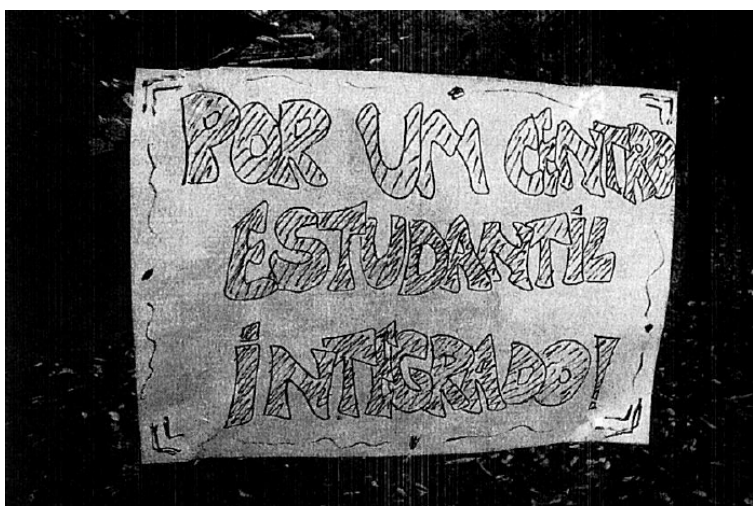 POR UM CENTRO
ESTUDANTIL
INTEGRADO!